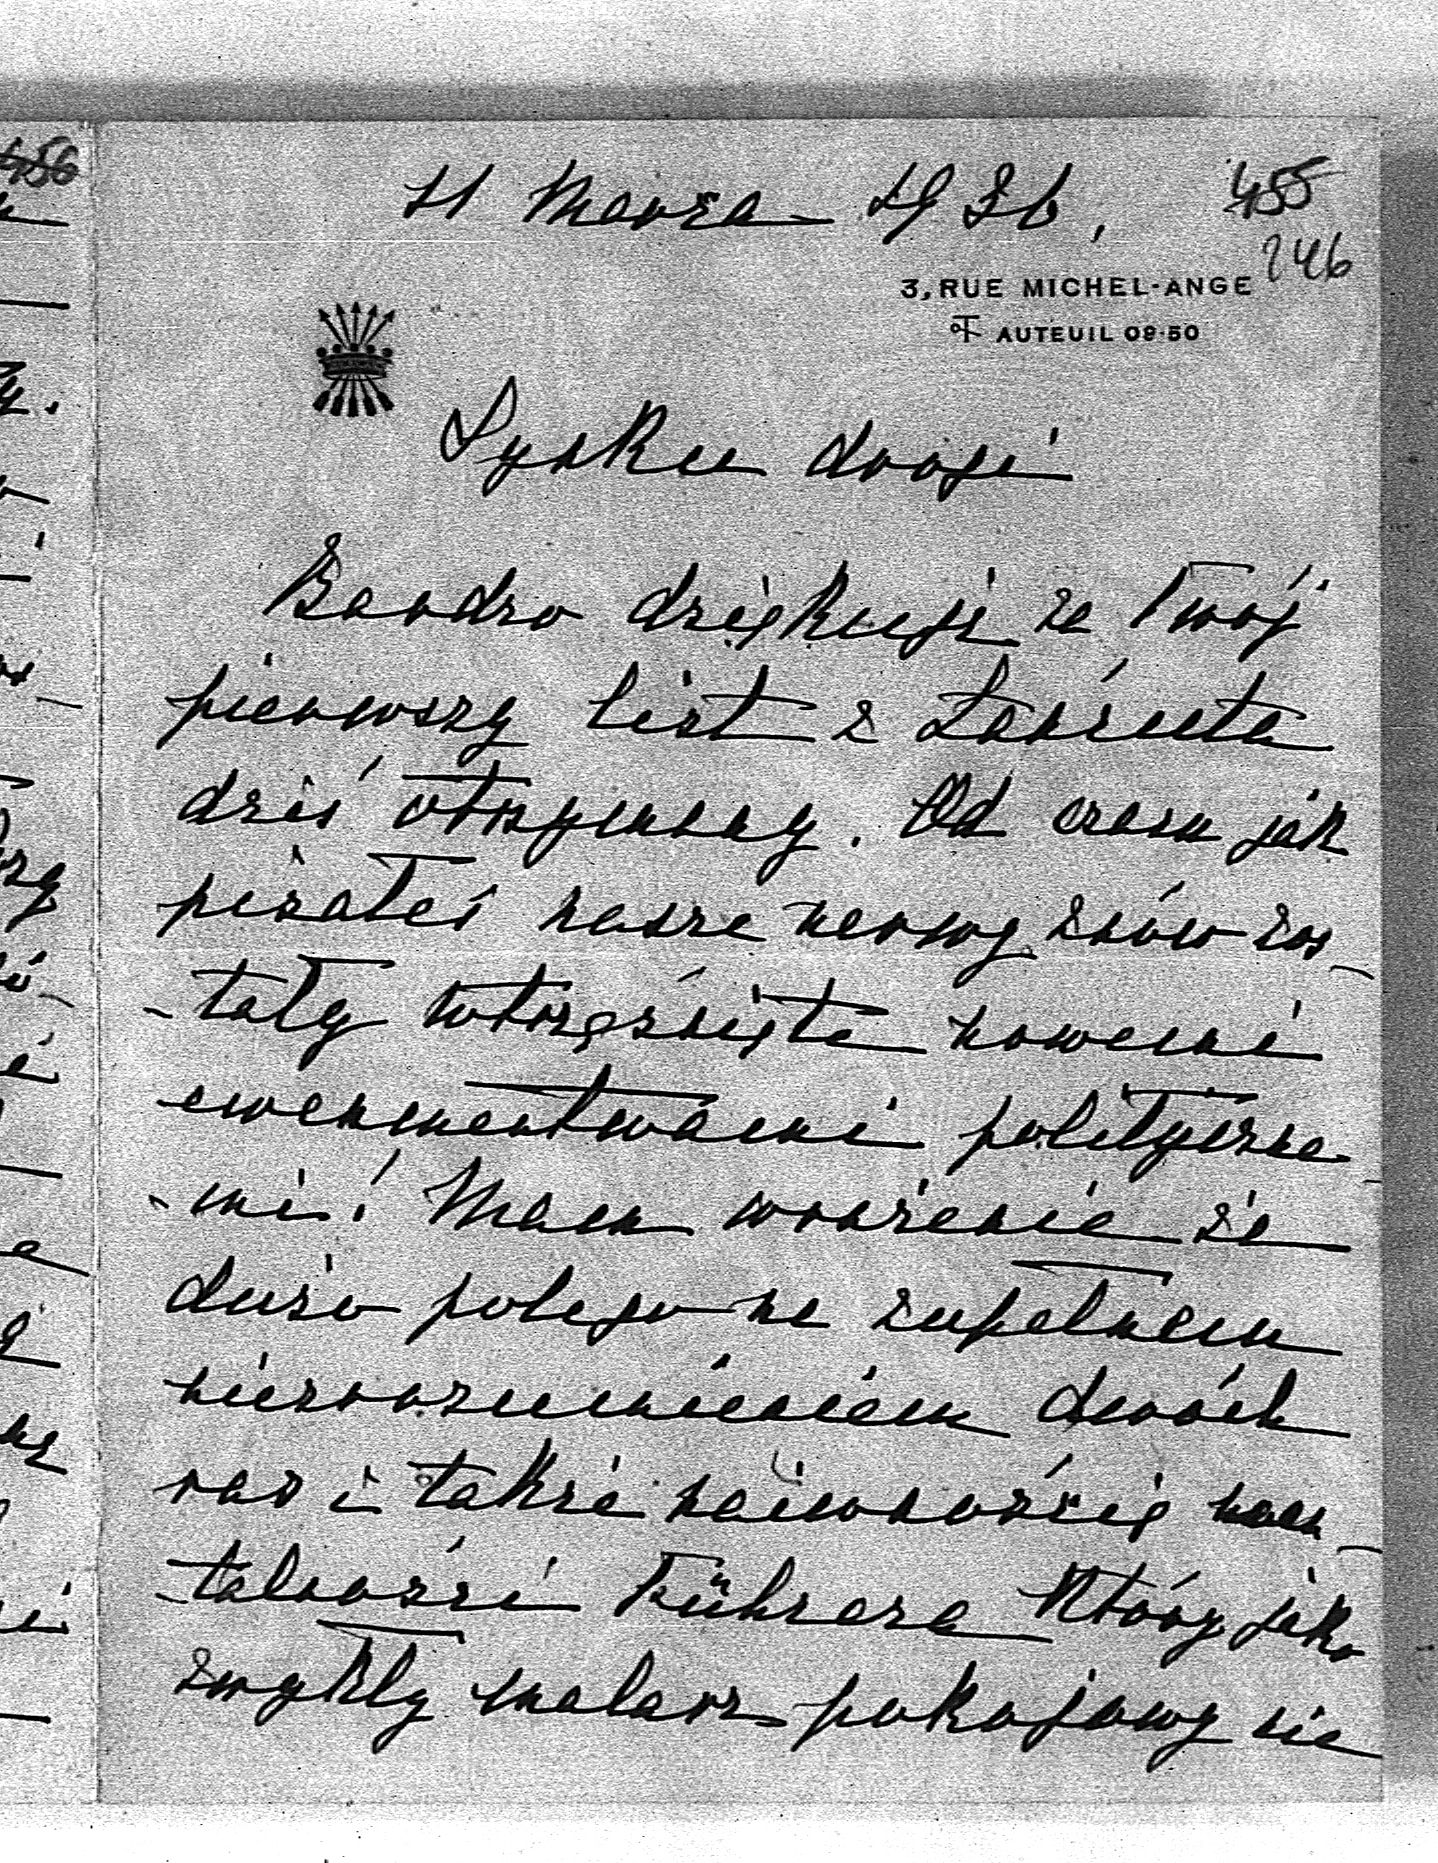 11 Marca 1936,
455
246
3, RUE MICHEL-ANGE
AUTEUIL 09-50
Synku drogi
Bardzo dziękuję za Twój
pierwszy list z Łańcuta
dziś otrzymany. Od czasu jak
pisałeś nasze nerwy znów zos-
-tały wtrząśnięte nowemi
ewenmentwami polityczne-
-mi! Mam wrażenie że
dużo polega na zupełnem
niezrozumieniem dwóch
ras i także naiwnością men-
-talności Führera który jako
zwykły malarz pokojowy nie
456